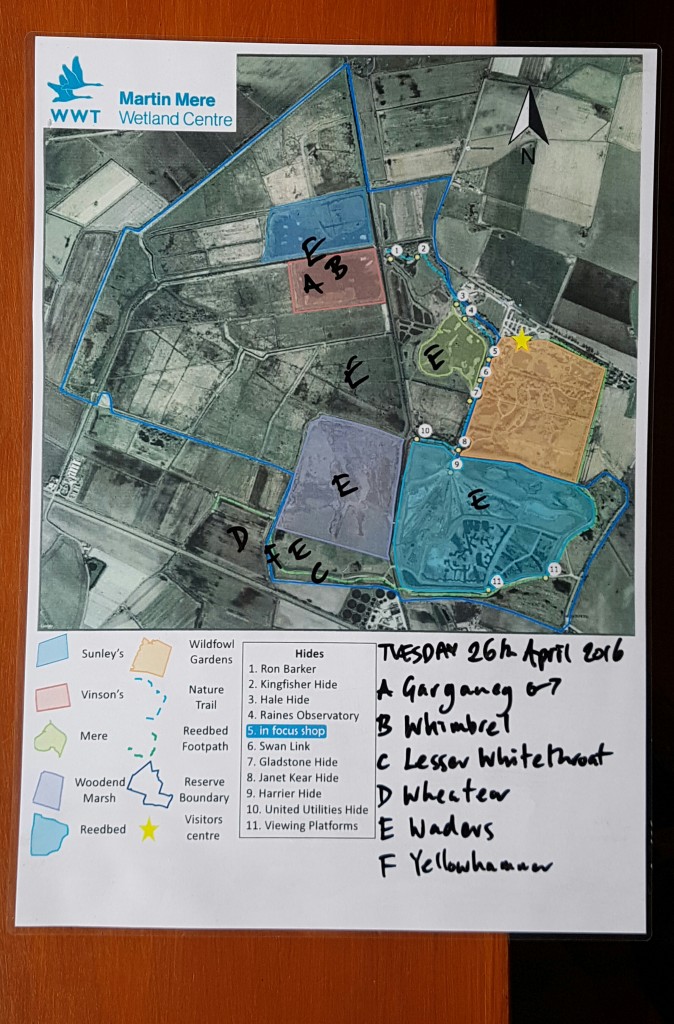 WWT
Martin Mere
Wetland Centre
N
E
A B
E
E
E
E
D
F E
C
1
2
3
4
5
6
7
8
9
10
11
11
Sunley's
Vinson's
Mere
Woodend
Marsh
Reedbed
Wildfowl
Gardens
Nature
Trail
Reedbed
Footpath
Reserve
Boundary
Visitors
centre
Hides
1. Ron Barker
2. Kingfisher Hide
3. Hale Hide
4. Raines Observatory
5. in focus shop
6. Swan Link
7. Gladstone Hide
8. Janet Kear Hide
9. Harrier Hide
10. United Utilities Hide
11. Viewing Platforms
TUESDAY 26th April 2016
A Garganey ♂
B Whimbrel
C Lesser Whitethroat
D Wheatear
E Waders
F Yellowhammer